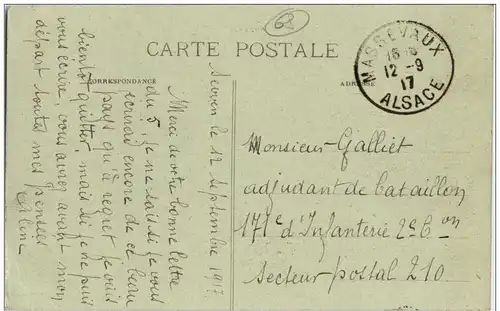 68
CARTE POSTALE
CORRESPONDANCE
ADRESSE
MASSEVAUX
12 - 9
17
ALSACE
le 12 septembre 1917
Merci de votre bonne lettre
du 5, je ne sais si je vous
écrirai encore de ce beau
pays qu'à regret je vais
bientôt quitter, mais si je ne puis
vous écrire, vous aurez avant mon
départ toutes mes pensées
Monsieur Galliet
adjudant de bataillon
171e d'Infanterie 2e Bon
secteur postal 210